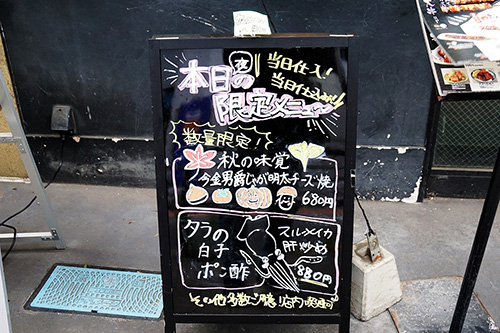 本日の
夜
限定メニュー
当日仕入!
当日仕込み!!
数量限定!!
秋の味覚
今金男爵じゃが明太チーズ焼
680円
タラの
白子
ポン酢
スルメイカ
肝炒め
880円
その他多数ご用意